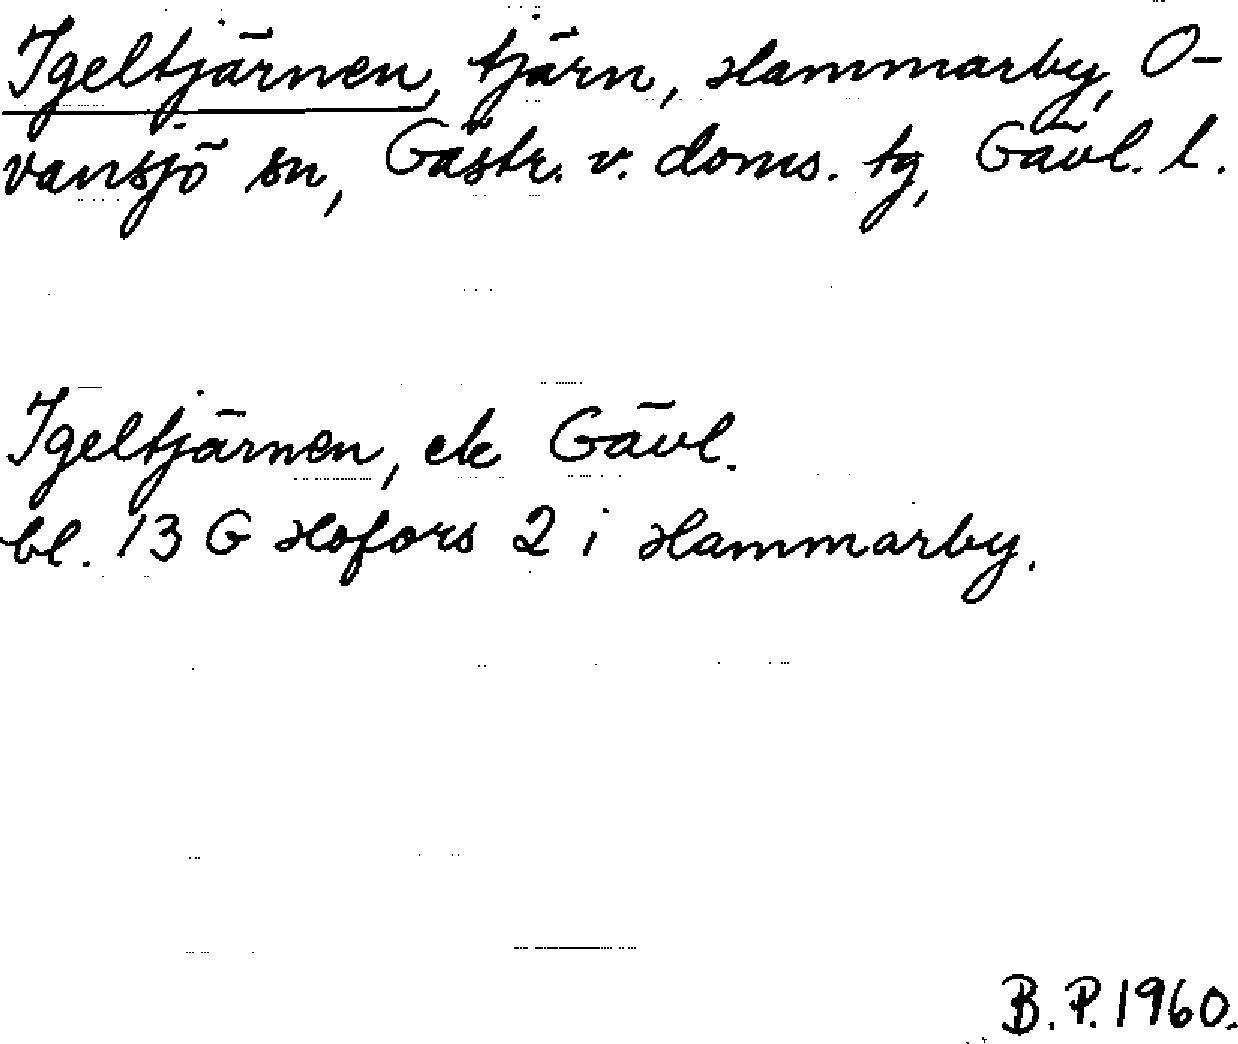 Igeltjärnen, tjärn, Hammarby, O-
vansjö sn, Gästr. v. doms. tg, Gävl. l.
Igeltjärnen, ek Gävl.
bl. 13 G Hofors 2 i Hammarby.
B. P. 1960.